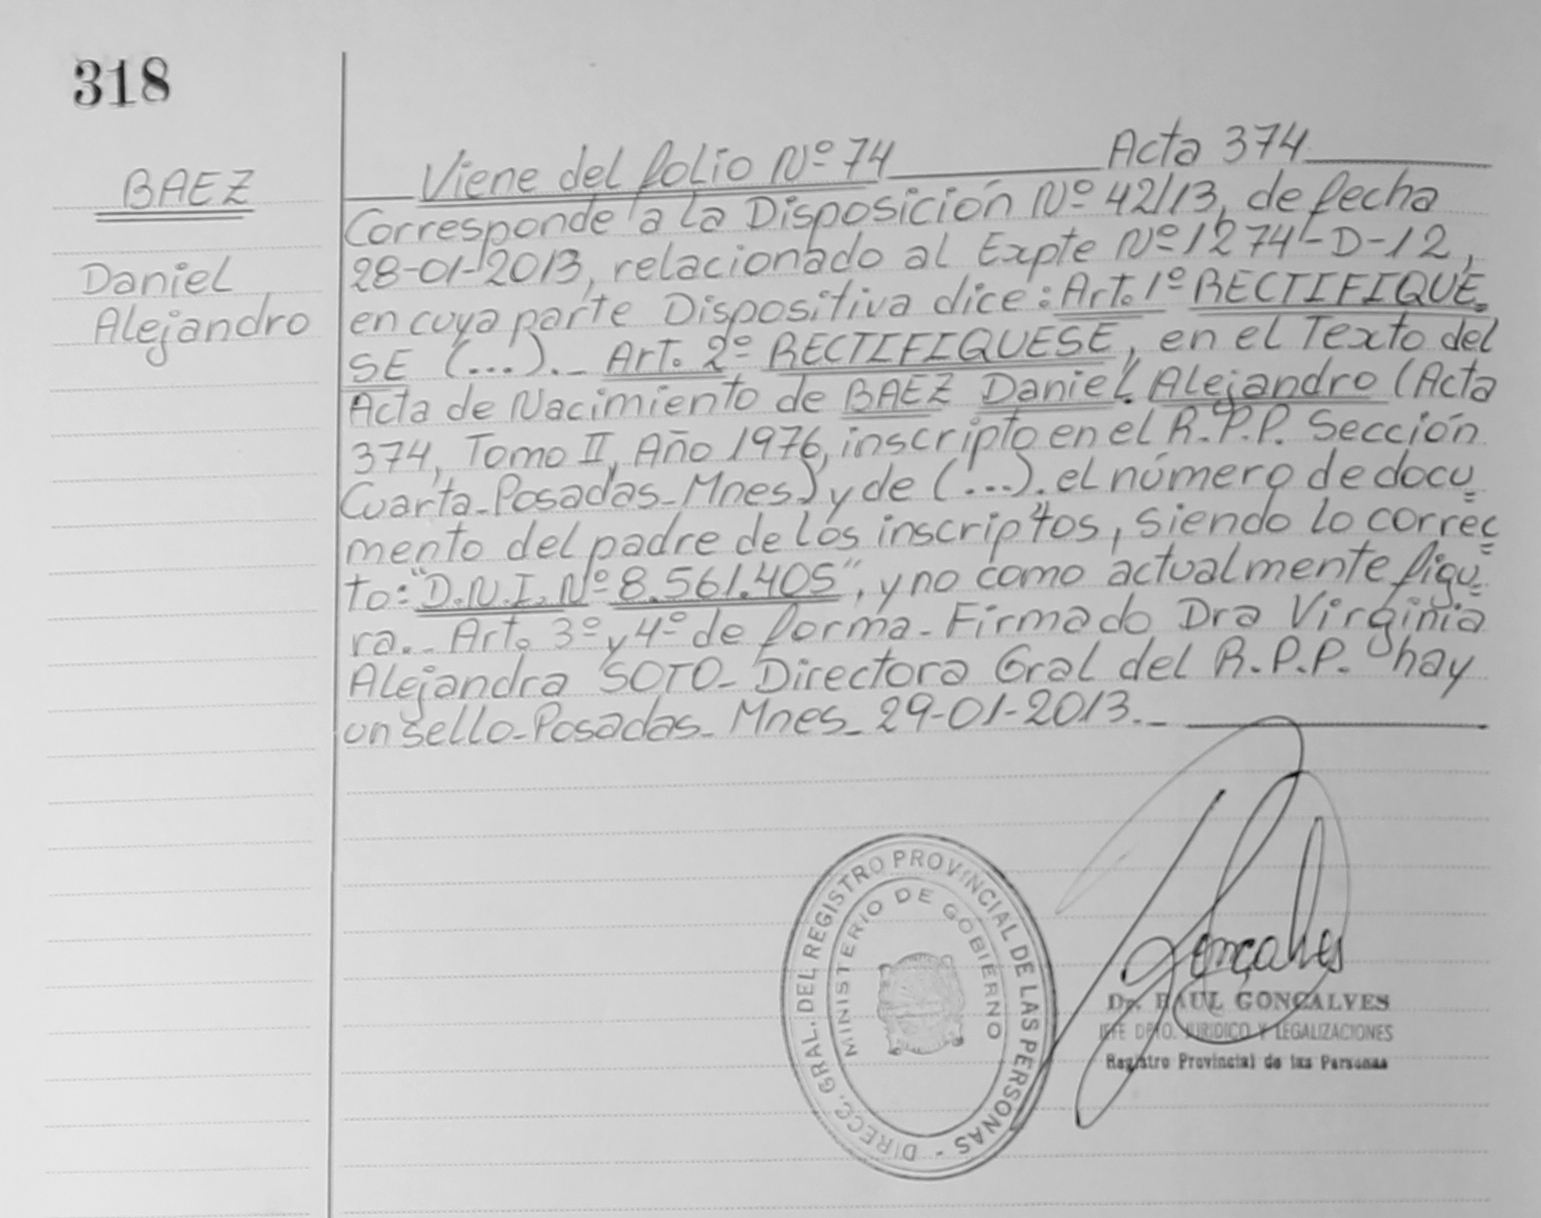 318
BAEZ
Daniel
Alejandro
Viene del folio Nº 74 Acta 374
Corresponde a la Disposición Nº 42/13, de fecha
28-01-2013, relacionado al Expte Nº 1274-D-12,
en cuya parte Dispositiva dice: Art. 1º RECTIFIQUE.
SE (...)._ Art. 2º RECTIFIQUESE, en el Texto del
Acta de Nacimiento de BAEZ Daniel Alejandro (Acta
374, Tomo II, Año 1976, inscripto en el R.P.P. Sección
Cuarta_Posadas_Mnes) y de (...). el número de docu=
mento del padre de los inscriptos, siendo lo correc=
to: "D.N.I. Nº 8.561.405", y no como actualmente figu=
ra._ Art. 3º y 4º de forma_ Firmado Dra Virginia
Alejandra SOTO_ Directora Gral del R.P.P. hay
un sello_Posadas_ Mnes_ 29-01-2013._
DIRECC. GRAL. DEL REGISTRO PROVINCIAL DE LAS PERSONAS -
MINISTERIO DE GOBIERNO
Gonçalves
Dr. RAUL GONÇALVES
JEFE DPTO. JURIDICO Y LEGALIZACIONES
Registro Provincial de las Personas